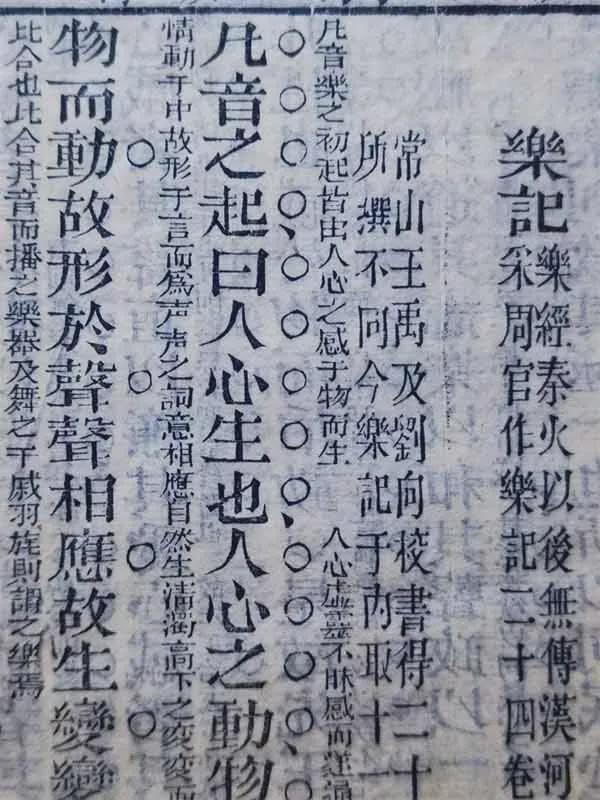 樂記
樂經秦火以後無傳漢河
采周官作樂記二十四卷
常山王禹及劉向校書得二十
所撰不同今樂記于內取十一
凡音樂之初起皆由人心之感于物而生 人心虛靈不昧感而遂通
凡音之起曰人心生也人心之動物
情動于中故形于言而爲声声之詞意相應自然生清濁高下之変変而
物而動故形於聲聲相應故生變變
比合也比合其音而播之樂器及舞之干戚羽旄則謂之樂焉